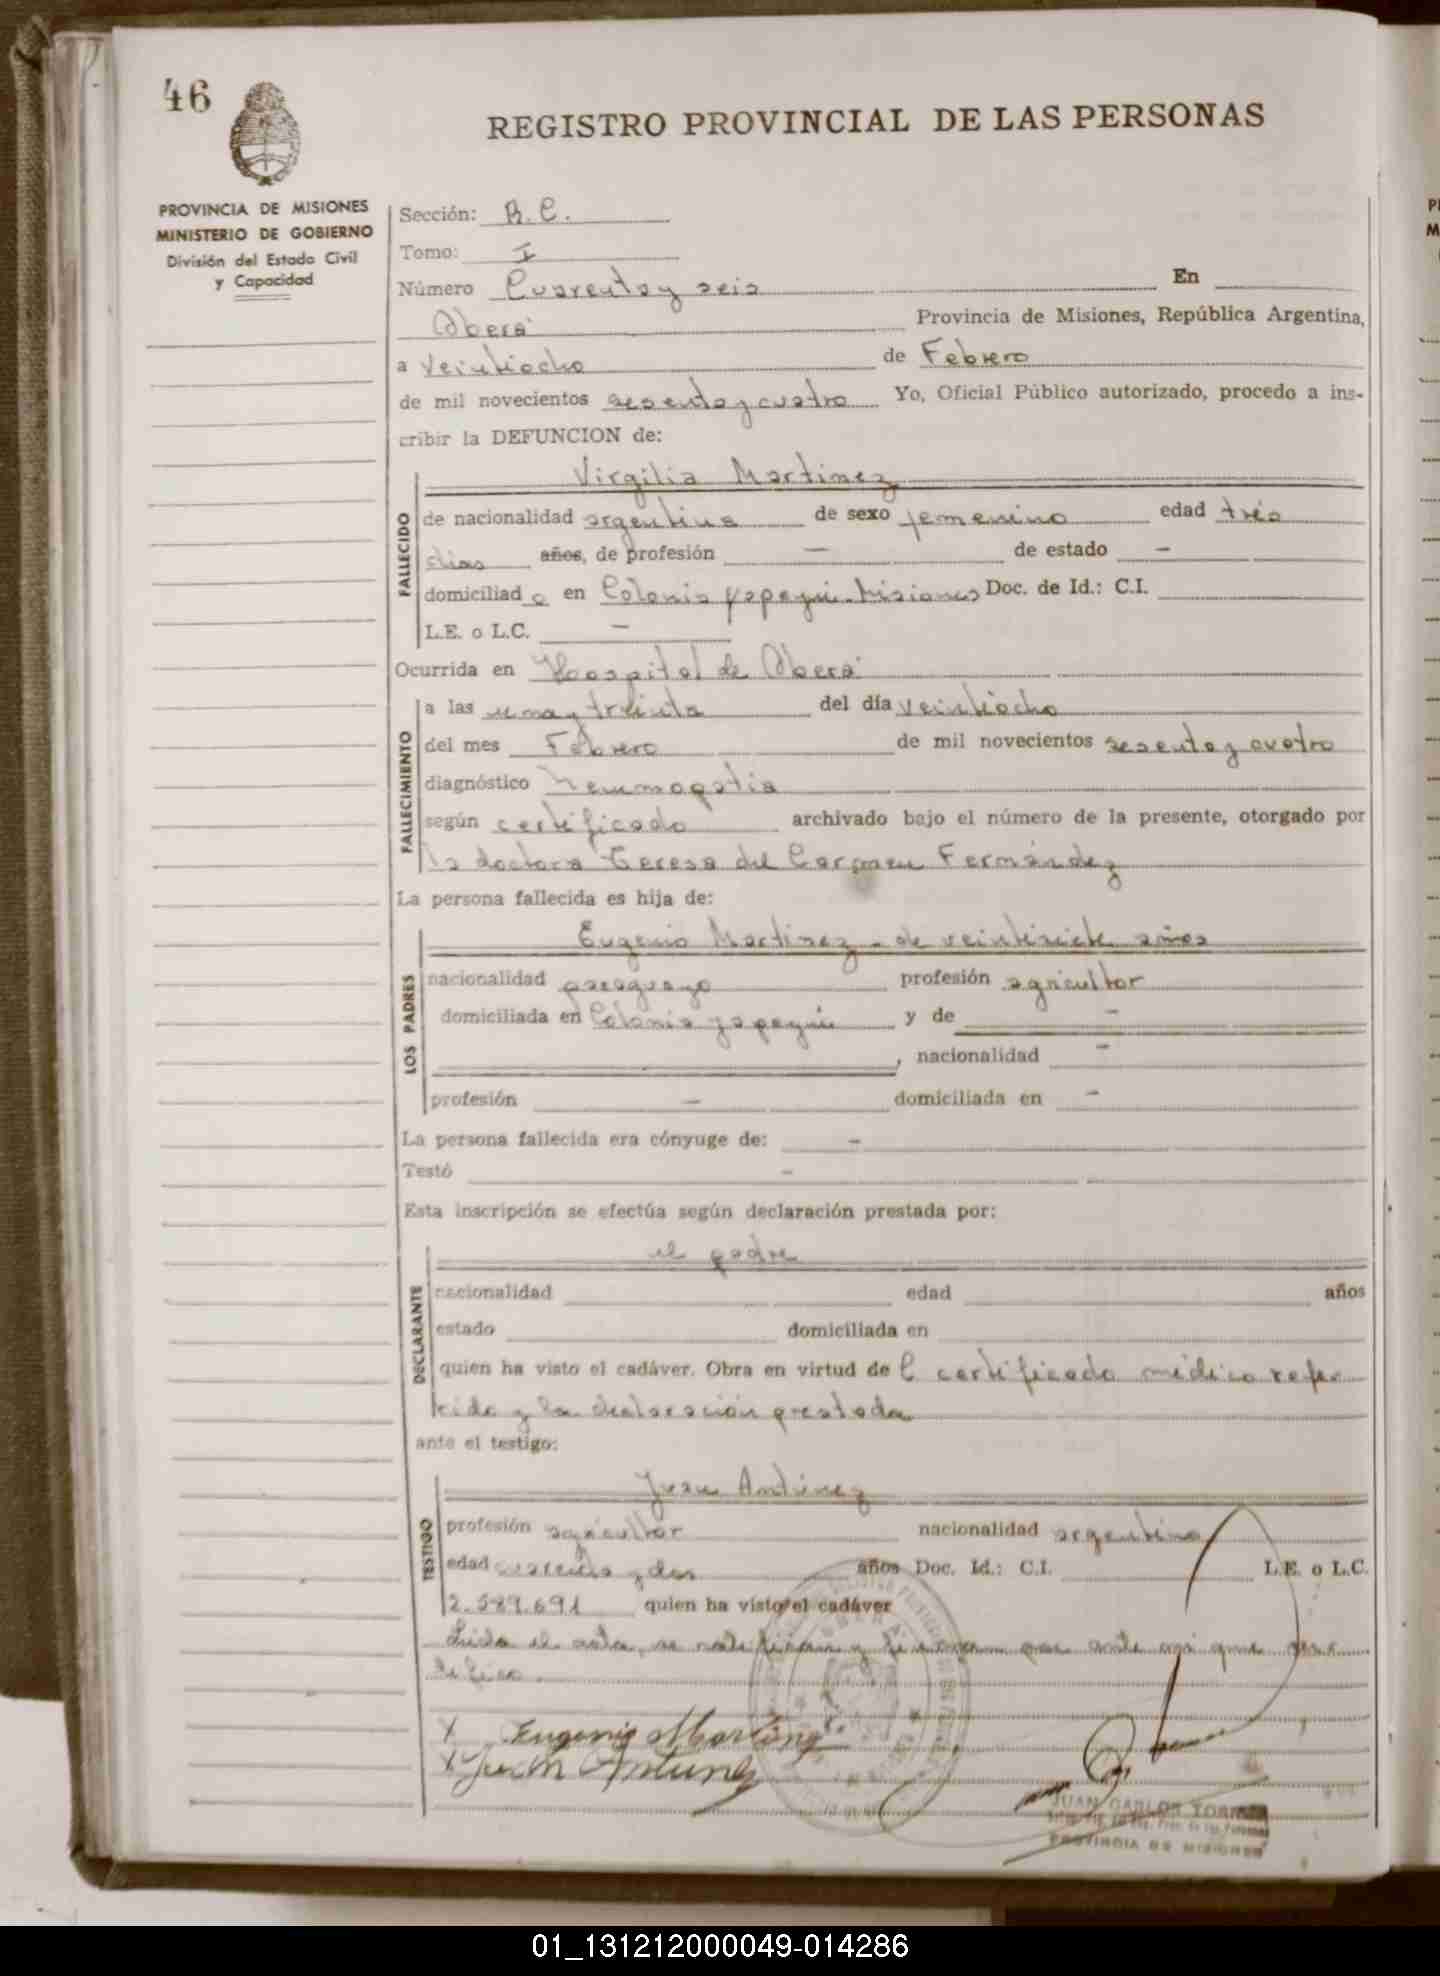 46
REGISTRO PROVINCIAL DE LAS PERSONAS
PROVINCIA DE MISIONES
MINISTERIO DE GOBIERNO
División del Estado Civil
y Capacidad
Sección: R. C.
Tomo: I
Número Cuarenta y seis En
Oberá Provincia de Misiones, República Argentina,
a veintiocho de Febrero
de mil novecientos sesenta y cuatro Yo, Oficial Público autorizado, procedo a ins-
cribir la DEFUNCION de:
Virgilia Martinez
FALLECIDO
de nacionalidad argentina de sexo femenino edad tres
dias años, de profesión — de estado —
domiciliad a en Colonia Yapeyú - Misiones Doc. de Id.: C.I.
L.E. o L.C. —
Ocurrida en Hospital de Oberá
FALLECIMIENTO
a las una y treinta del día veintiocho
del mes Febrero de mil novecientos sesenta y cuatro
diagnóstico
según certificado archivado bajo el número de la presente, otorgado por
la doctora Teresa del Carmen Fernández
La persona fallecida es hija de:
LOS PADRES
Eugenio Martinez - de veintisiete años
nacionalidad paraguayo profesión agricultor
domiciliada en Colonia Yapeyú y de —
, nacionalidad —
profesión — domiciliada en —
La persona fallecida era cónyuge de: —
Testó —
Esta inscripción se efectúa según declaración prestada por:
DECLARANTE
el padre
nacionalidad edad años
estado domiciliada en
quien ha visto el cadáver. Obra en virtud de l certificado médico refe
rido y la declaración prestada
ante el testigo:
TESTIGO
Juan Antúnez
profesión agricultor nacionalidad argentino
edad cuarenta y dos años Doc. Id.: C.I. L.E. o L.C.
2.589.691 quien ha visto el cadáver
Leida el acta, se ratifican y firman por ante mi que
X Eugenio Martinez
X Juan Antunez
JUAN CARLOS
PROVINCIA DE MISIONES
01_131212000049-014286